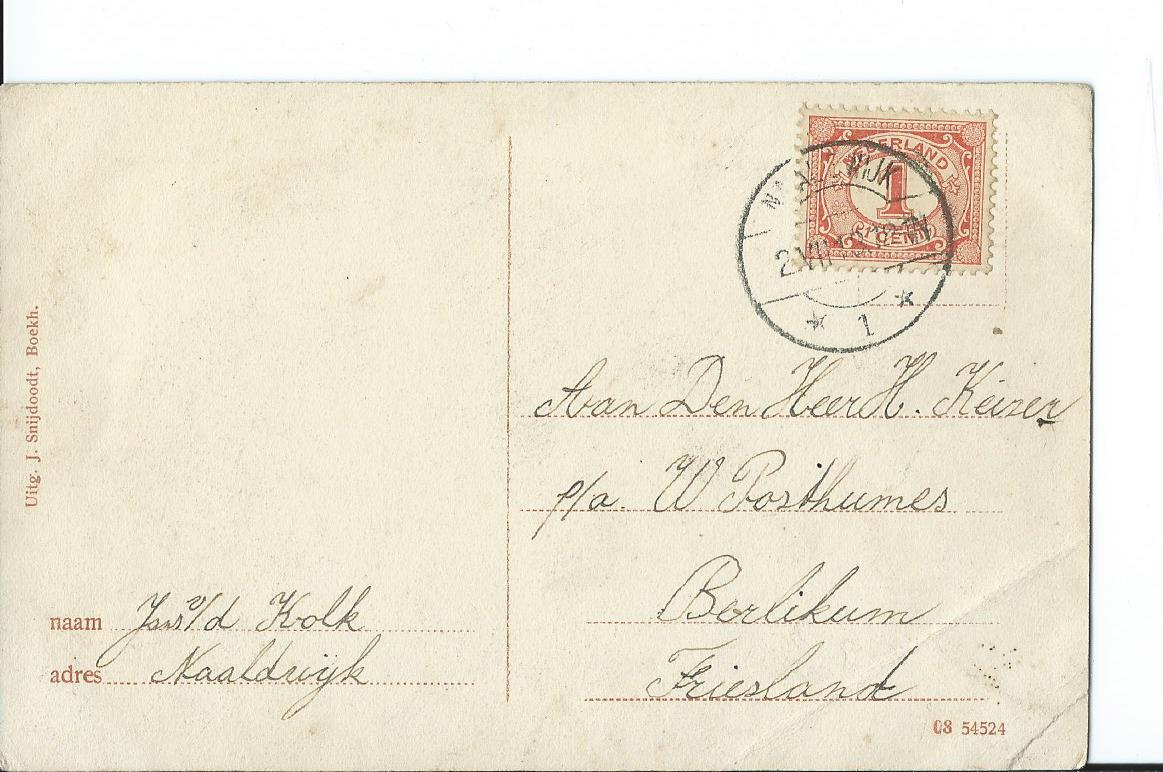 NEDERLAND
1
CENT
NAALDWIJK
1
Uitg. J. Snijdoodt, Boekh.
Aan Den Heer H. Keizer
p/a. W Posthumes
Berlikum
Friesland
naam v/d Kolk
adres Naaldwijk
08 54524